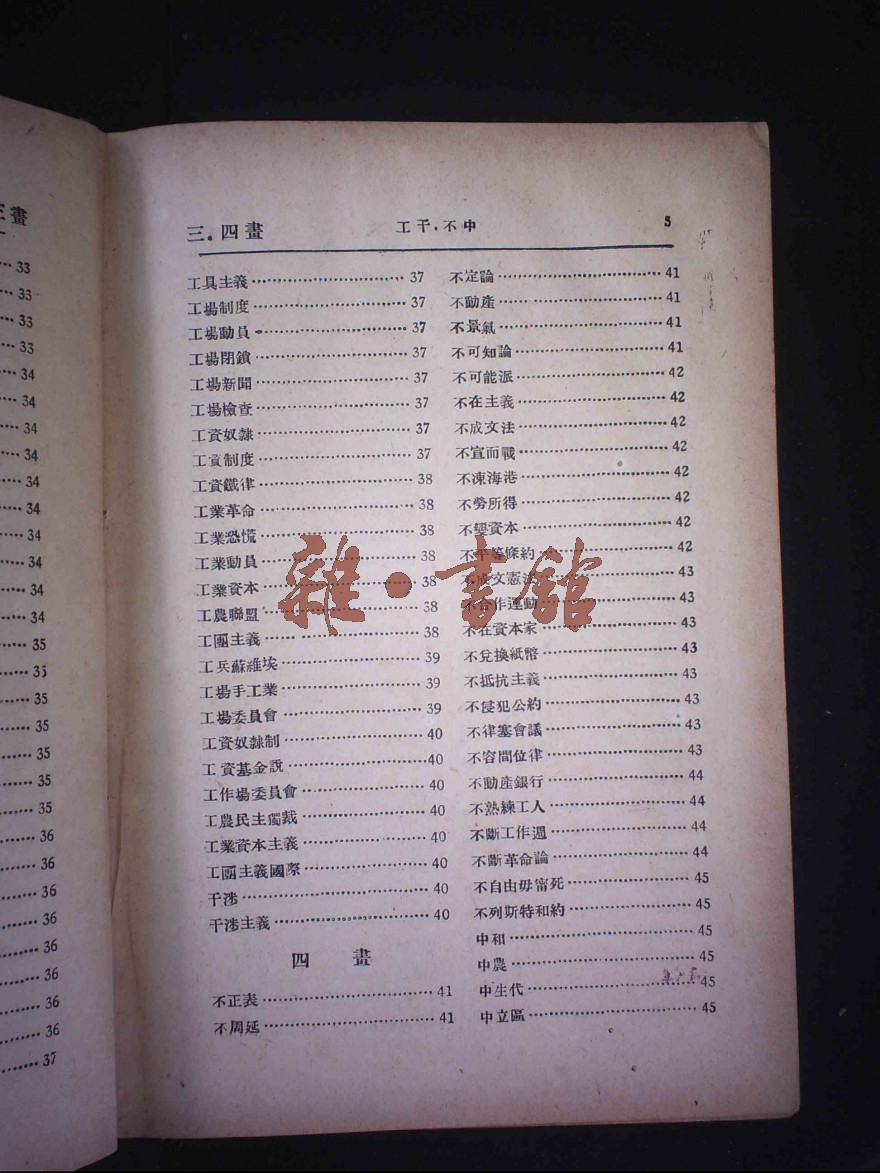 畫
33
33
33
33
34
34
34
34
34
34
34
34
34
34
35
35
35
35
35
35
35
36
36
36
36
36
36
36
36
37
三．四畫 工干．不中 5
工具主義 37
工場制度 37
工場動員 37
工場閉鎖 37
工場新聞 37
工場檢查 37
工資奴隸 37
工資制度 37
工資鐵律 38
工業革命 38
工業恐慌 38
工業動員 38
工業資本 38
工農聯盟 38
工團主義 38
工兵蘇維埃 39
工場手工業 39
工場委員會 39
工資奴隸制 40
工資基金說 40
工作場委員會 40
工農民主獨裁 40
工業資本主義 40
工團主義國際 40
干涉 40
干涉主義 40
四畫
不正表 41
不周延 41
不定論 41
不動產 41
不景氣 41
不可知論 41
不可能派 42
不在主義 42
不成文法 42
不宣而戰 42
不凍海港 42
不勞所得 42
不變資本 42
不平等條約 42
不成文憲法 43
不合作運動 43
不在資本家 43
不兌換紙幣 43
不抵抗主義 43
不侵犯公約 43
不律塞會議 43
不容間位律 43
不動產銀行 44
不熟練工人 44
不斷工作週 44
不斷革命論 44
不自由毋甯死 45
不列斯特和約 45
中和 45
中農 45
中生代 45
中立區 45
雜·書館